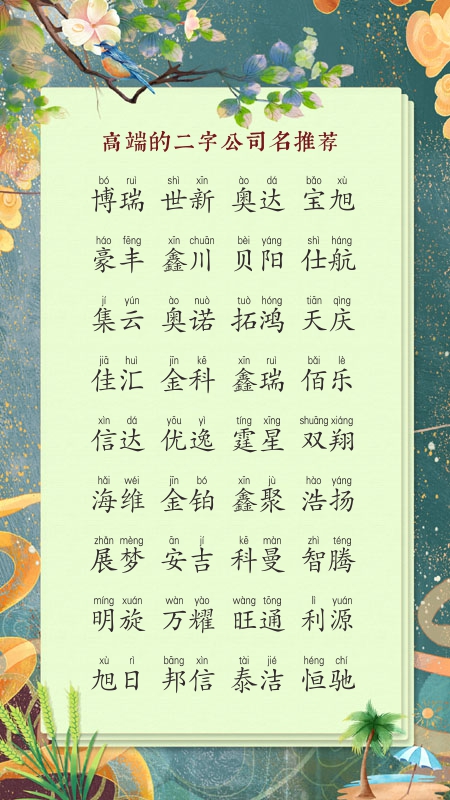 高端的二字公司名推荐
bó ruì shì xīn ào dá bǎo xù
博瑞 世新 奥达 宝旭
háo fēng xīn chuān bèi yáng shì háng
豪丰 鑫川 贝阳 仕航
jí yún ào nuò tuò hóng tiān qìng
集云 奥诺 拓鸿 天庆
jiā huì jīn kē xīn ruì bǎi lè
佳汇 金科 鑫瑞 佰乐
xìn dá yōu yì tíng xīng shuāng xiáng
信达 优逸 霆星 双翔
hǎi wéi jīn bó xīn jù hào yáng
海维 金铂 鑫聚 浩扬
zhǎn mèng ān jí kē màn zhì téng
展梦 安吉 科曼 智腾
míng xuán wàn yào wàng tōng lì yuán
明旋 万耀 旺通 利源
xù rì bāng xìn tài jié héng chí
旭日 邦信 泰洁 恒驰